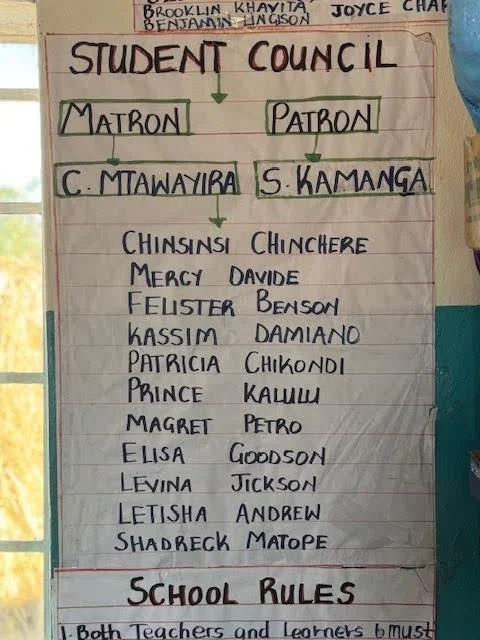 BROOKLIN KHAVITA, JOYCE CHAF
BENJAMIN LINGISON
STUDENT COUNCIL
MATRON PATRON
C. MTAWAYIRA S. KAMANGA
CHINSINSI CHINCHERE
MERCY DAVIDE
FELISTER BENSON
KASSIM DAMIANO
PATRICIA CHIKONDI
PRINCE KALULU
MAGRET PETRO
ELISA GOODSON
LEVINA JICKSON
LETISHA ANDREW
SHADRECK MATOPE
SCHOOL RULES
1. Both Teachers and Learners must